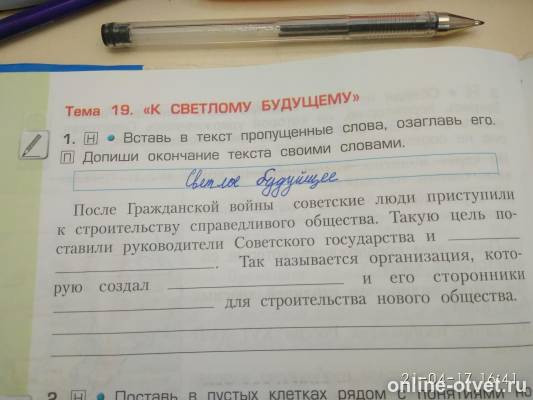 Тема 19. «К СВЕТЛОМУ БУДУЩЕМУ»
1. Н • Вставь в текст пропущенные слова, озаглавь его.
П Допиши окончание текста своими словами.
Светлое будуйщее
После Гражданской войны советские люди приступили
к строительству справедливого общества. Такую цель по-
ставили руководители Советского государства и
. Так называется организация, кото-
рую создал и его сторонники
для строительства нового общества.
21-04-17 16:41
2. Н • Поставь в пустых клетках рядом с понятиями но
online-otvet.ru